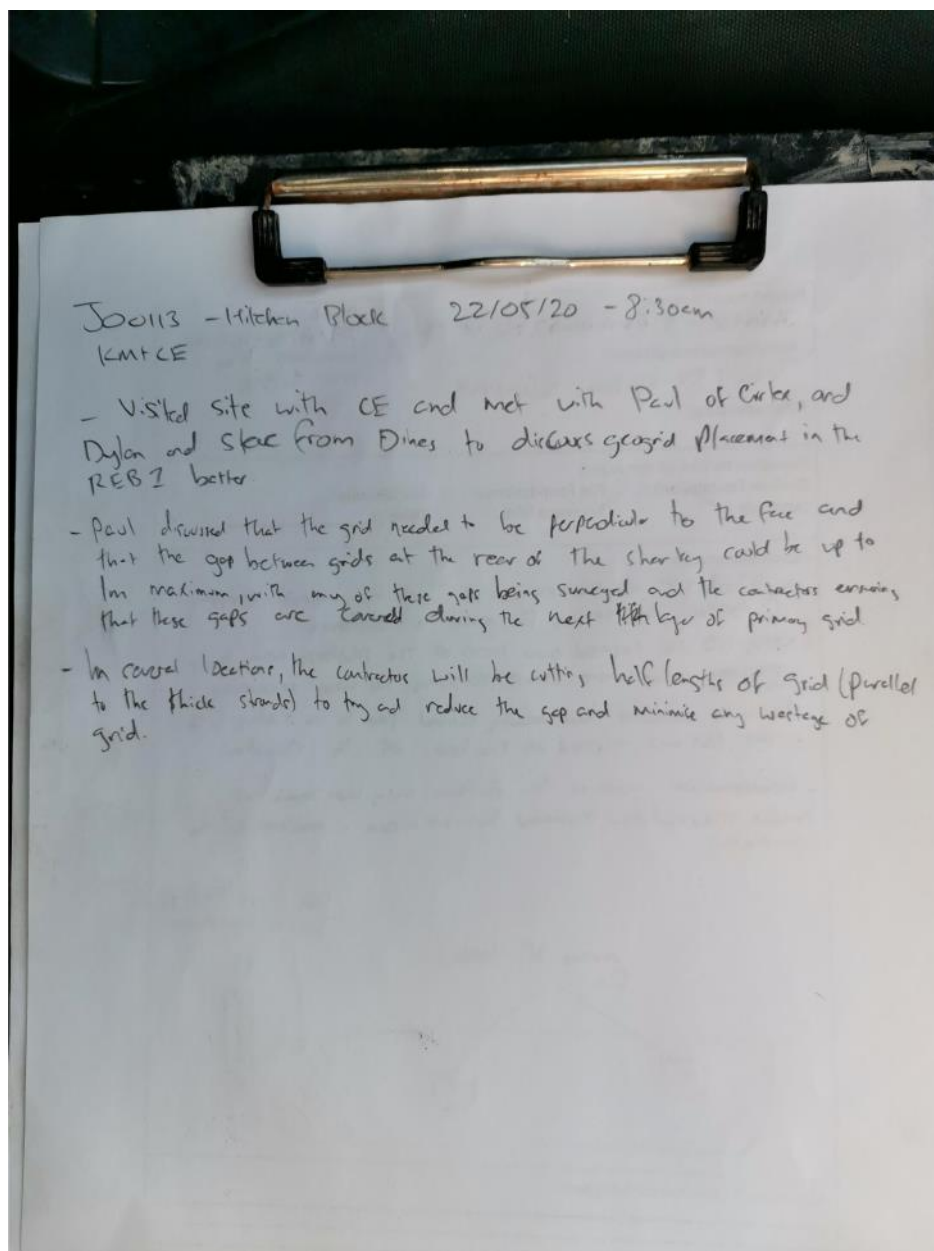 J00113 - Hitchen Block 22/05/20 - 8:30am
KM+CE
- Visited site with CE and met with Paul of Cirtex, and
Dylan and Steve from Dines to discuss geogrid placement in the
REB 1 batter
- Paul discussed that the grid needed to be perpedicular to the face and
that the gap between grids at the rear of the shear key could be up to
1m maximum, with any of these gaps being surveyed and the contractors ensuring
that these gaps are covered during the next layer of primary grid
- In several locations, the contractor will be cutting half lengths of grid (parallel
to the thick strands) to try and reduce the gap and minimise any wastage of
grid.